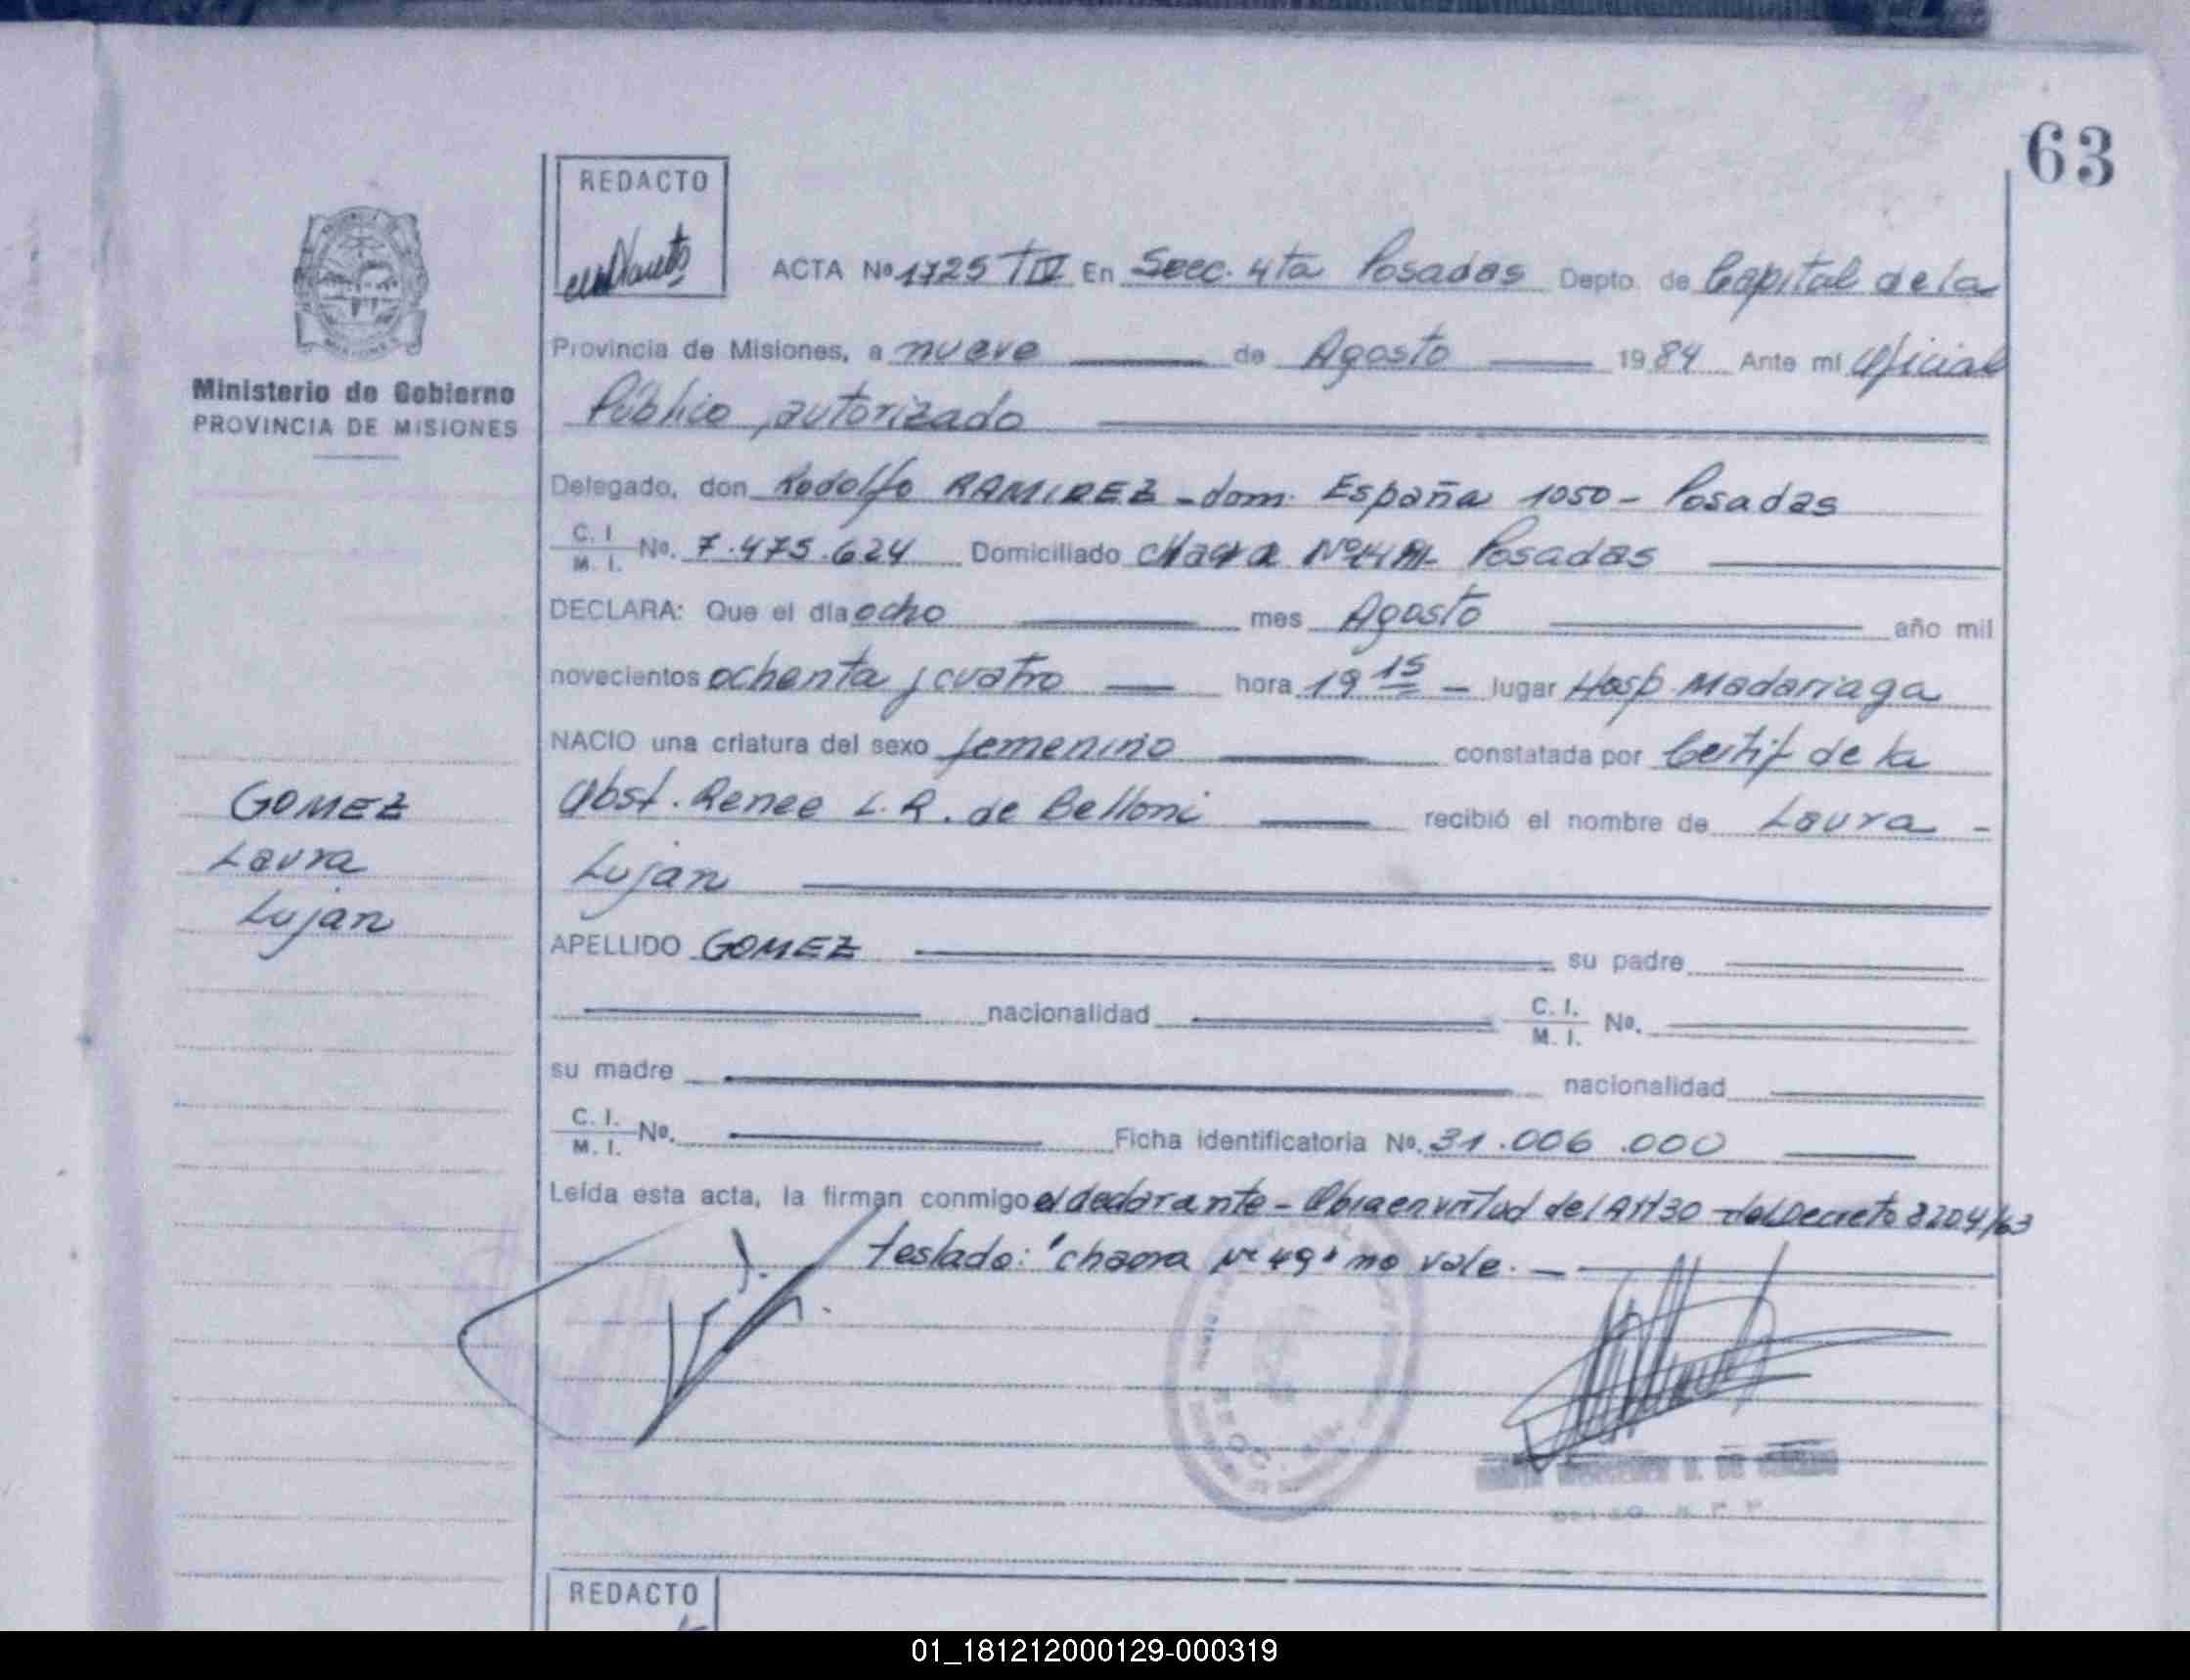 63
REDACTO
ACTA Nº 1725 TIV En Secc. 4ta Posadas Depto. de Capital de la
Provincia de Misiones, a nueve de Agosto 1984 Ante mí Oficial
Ministerio de Gobierno
PROVINCIA DE MISIONES
Público autorizado
Delegado, don Rodolfo RAMIREZ - dom. España 1050 - Posadas
C. I. M. I. No. 7.475.624 Domiciliado Posadas
DECLARA: Que el día ocho mes Agosto año mil
novecientos ochenta y cuatro hora 19 15 - lugar Hosp. Madariaga
NACIO una criatura del sexo femenino constatada por Certif de la
GOMEZ
Laura
Lujan
Obst. Renee L. R. de Belloni recibió el nombre de Laura -
Lujan
APELLIDO GOMEZ su padre
nacionalidad C. I. M. I. No.
su madre nacionalidad
C. I. M. I. No. Ficha identificatoria No. 31.006.000
Leída esta acta, la firman conmigo el declarante - Obra en virtud del Art 30 del Decreto 8204/63
teslado: "chacra Nº 49" no vale. -
REDACTO
01_181212000129-000319